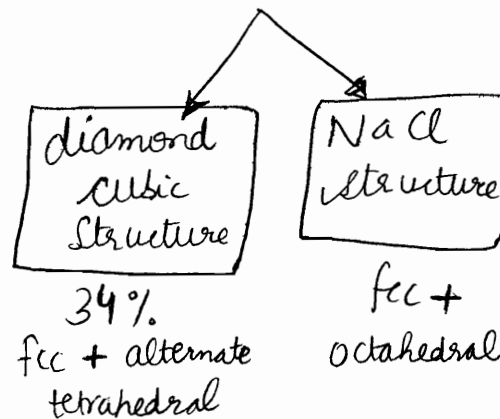 diamond
cubic
structure
34%
fcc + alternate
tetrahedral
NaCl
structure
fcc +
octahedral